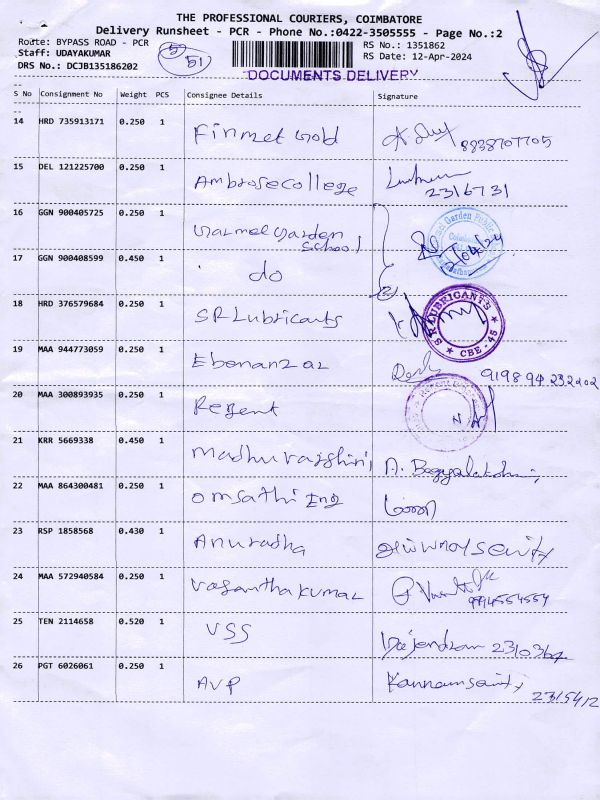 THE PROFESSIONAL COURIERS, COIMBATORE
Delivery Runsheet - PCR - Phone No.:0422-3505555 - Page No.:2
Route: BYPASS ROAD - PCR
Staff: UDAYAKUMAR
DRS No.: DCJB135186202
51
RS No.: 1351862
RS Date: 12-Apr-2024
DOCUMENTS DELIVERY
S No Consignment No Weight PCS Consignee Details Signature
14 HRD 735913171 0.250 1 Finmet Gold
15 DEL 121225700 0.250 1 Ambrose college 2316731
16 GGN 900405725 0.250 1 Carmel Garden School
17 GGN 900408599 0.450 1 do
18 HRD 376579684 0.250 1 SR Lubricants S R LUBRICANTS CBE - 45
19 MAA 944773059 0.250 1 Ebenanzar
20 MAA 300893935 0.250 1 Regent
21 KRR 5669338 0.450 1
22 MAA 864300481 0.250 1 Omsathi Eng
23 RSP 1858568 0.430 1 Anuradha
24 MAA 572940584 0.250 1 Vasanthakumar 9994554554
25 TEN 2114658 0.520 1 VSS
26 PGT 6026061 0.250 1 AVP 2315412